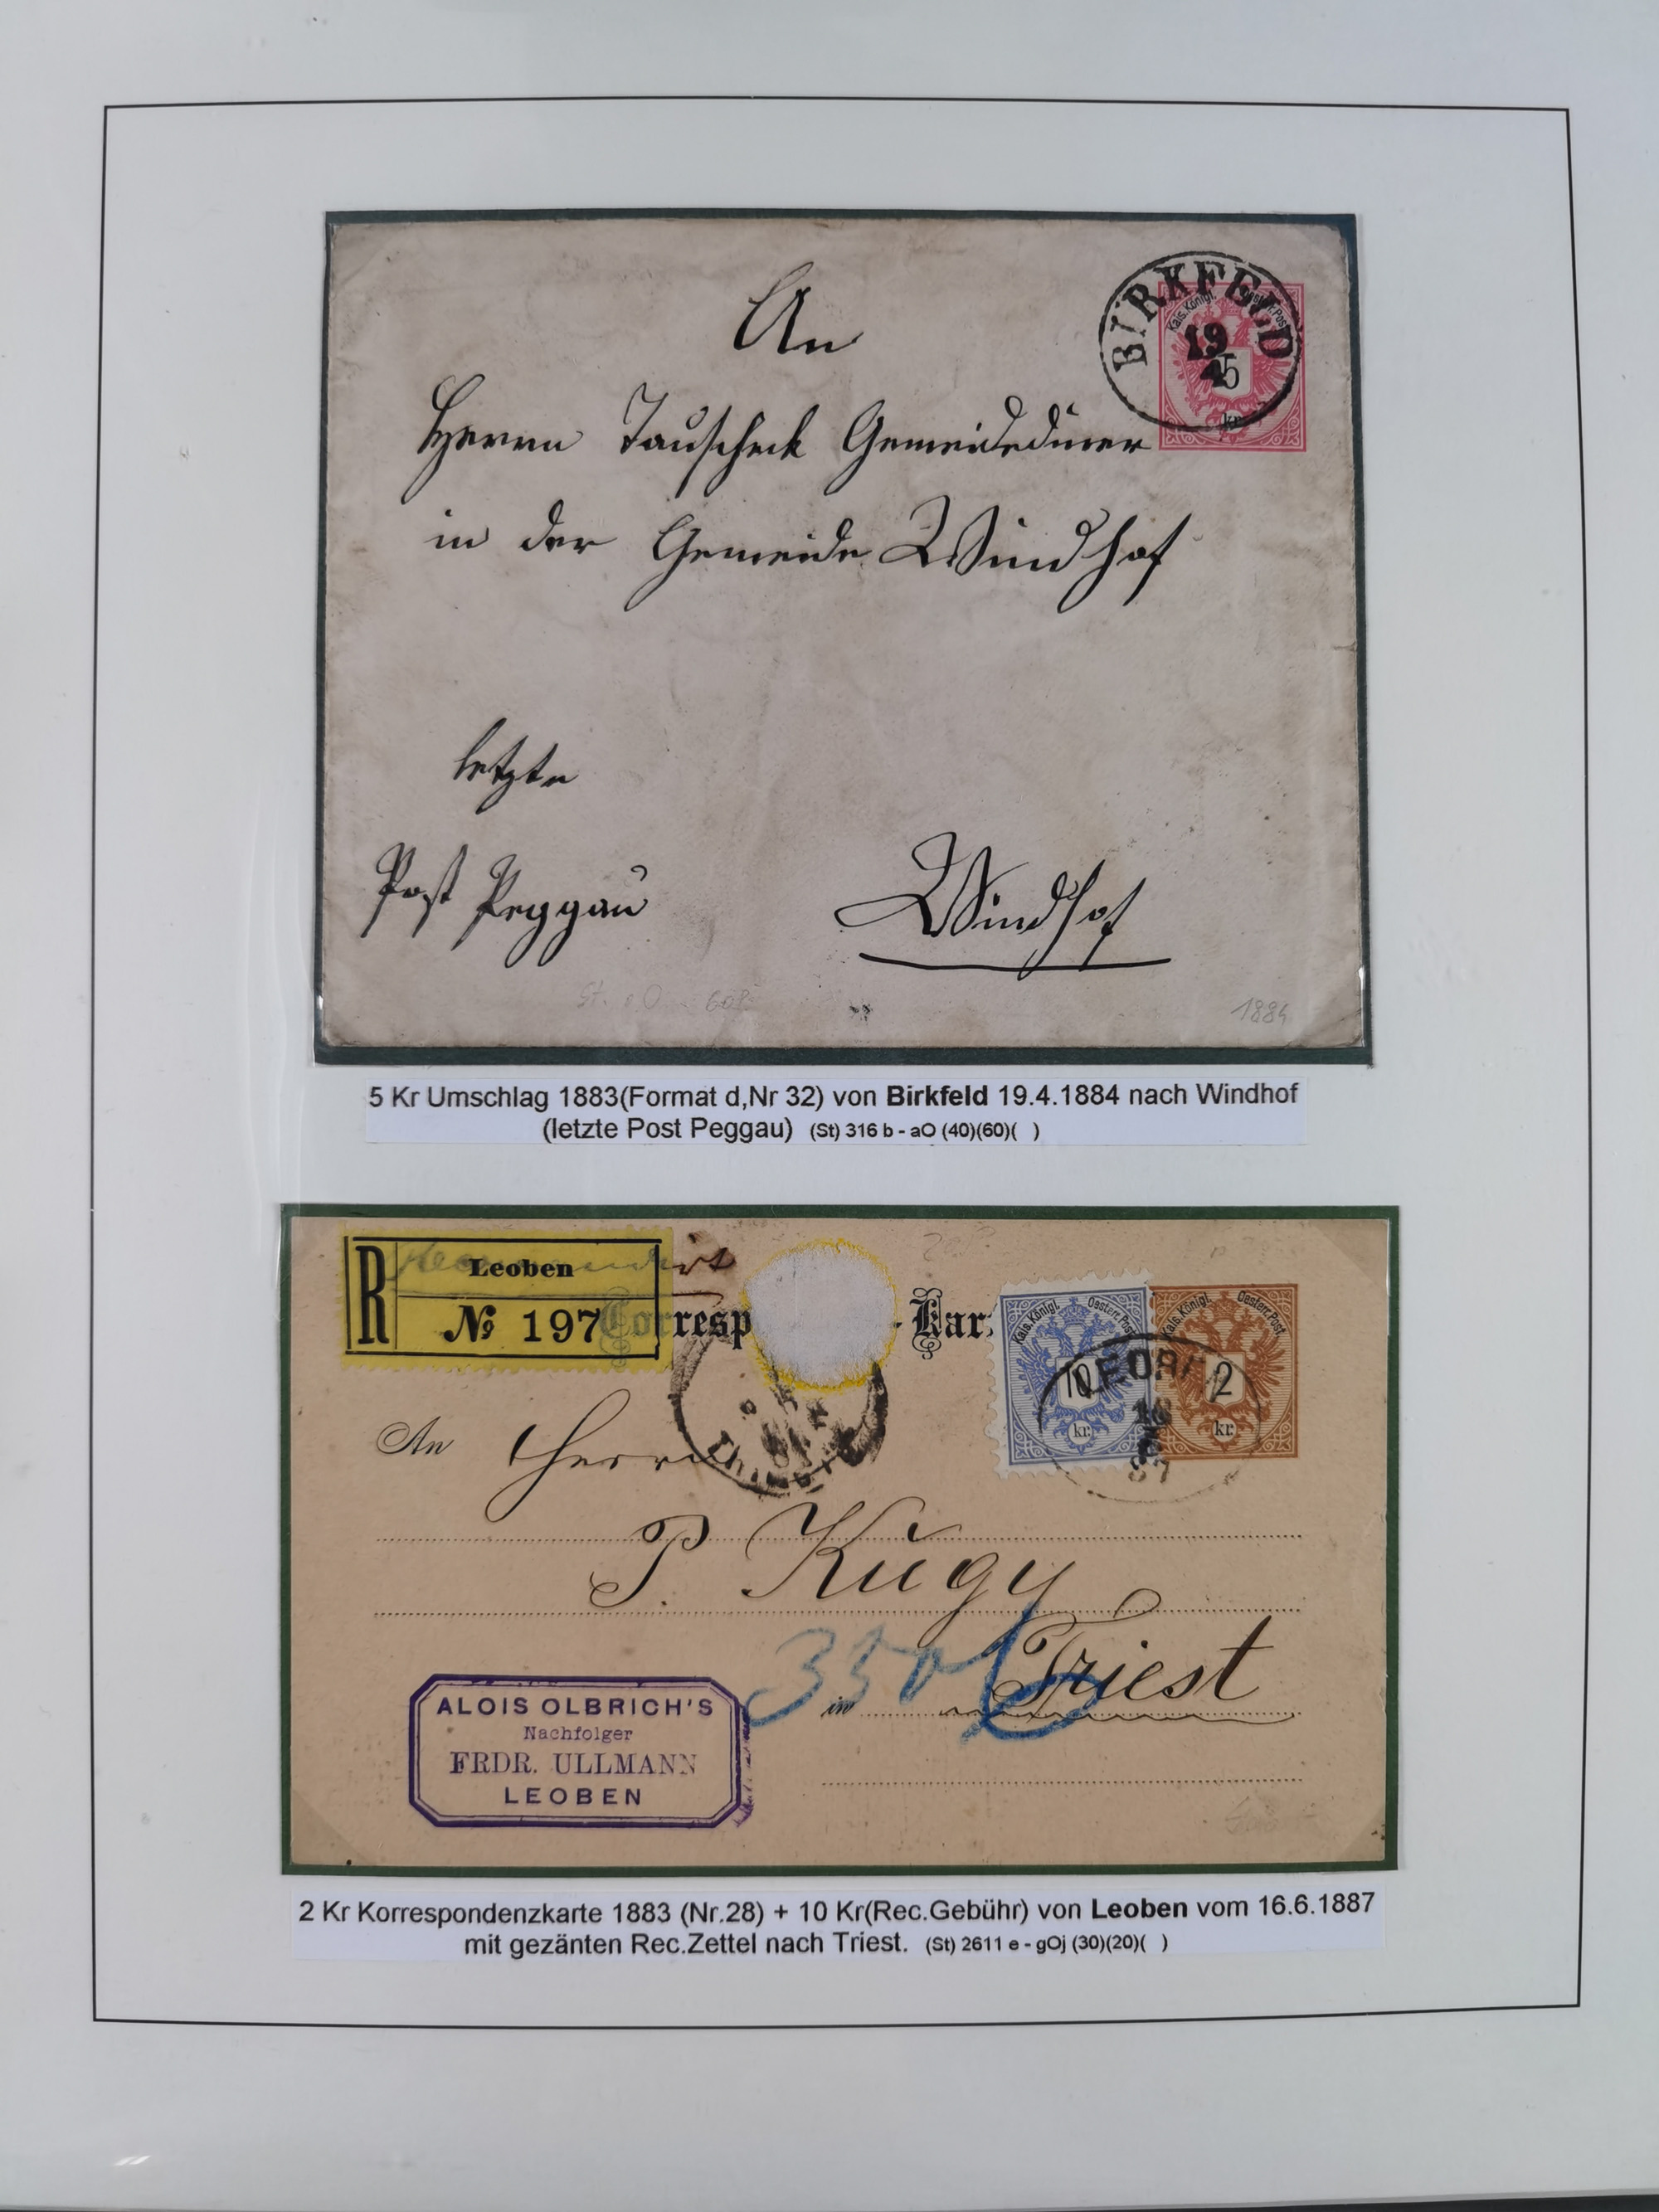 An
BIRKFELD
19
4
Kais. Königl. Oesterr. Post
5
kr.
Herrn Tauscheck Gemeidediener
in der Gemeide Windhof
letzte
Post Peggau
Windhof
1884
5 Kr Umschlag 1883(Format d,Nr 32) von Birkfeld 19.4.1884 nach Windhof
(letzte Post Peggau) (St) 316 b - aO (40)(60)( )
R
Leoben
№ 197
Corresp - Kar
Kais. Königl. Oesterr. Post
10
kr.
Kais. Königl. Oesterr. Post
2
kr.
87
An Herrn
P. Kugy
in Triest
ALOIS OLBRICH'S
Nachfolger
FRDR. ULLMANN
LEOBEN
2 Kr Korrespondenzkarte 1883 (Nr.28) + 10 Kr(Rec.Gebühr) von Leoben vom 16.6.1887
mit gezänten Rec.Zettel nach Triest. (St) 2611 e - gOj (30)(20)( )